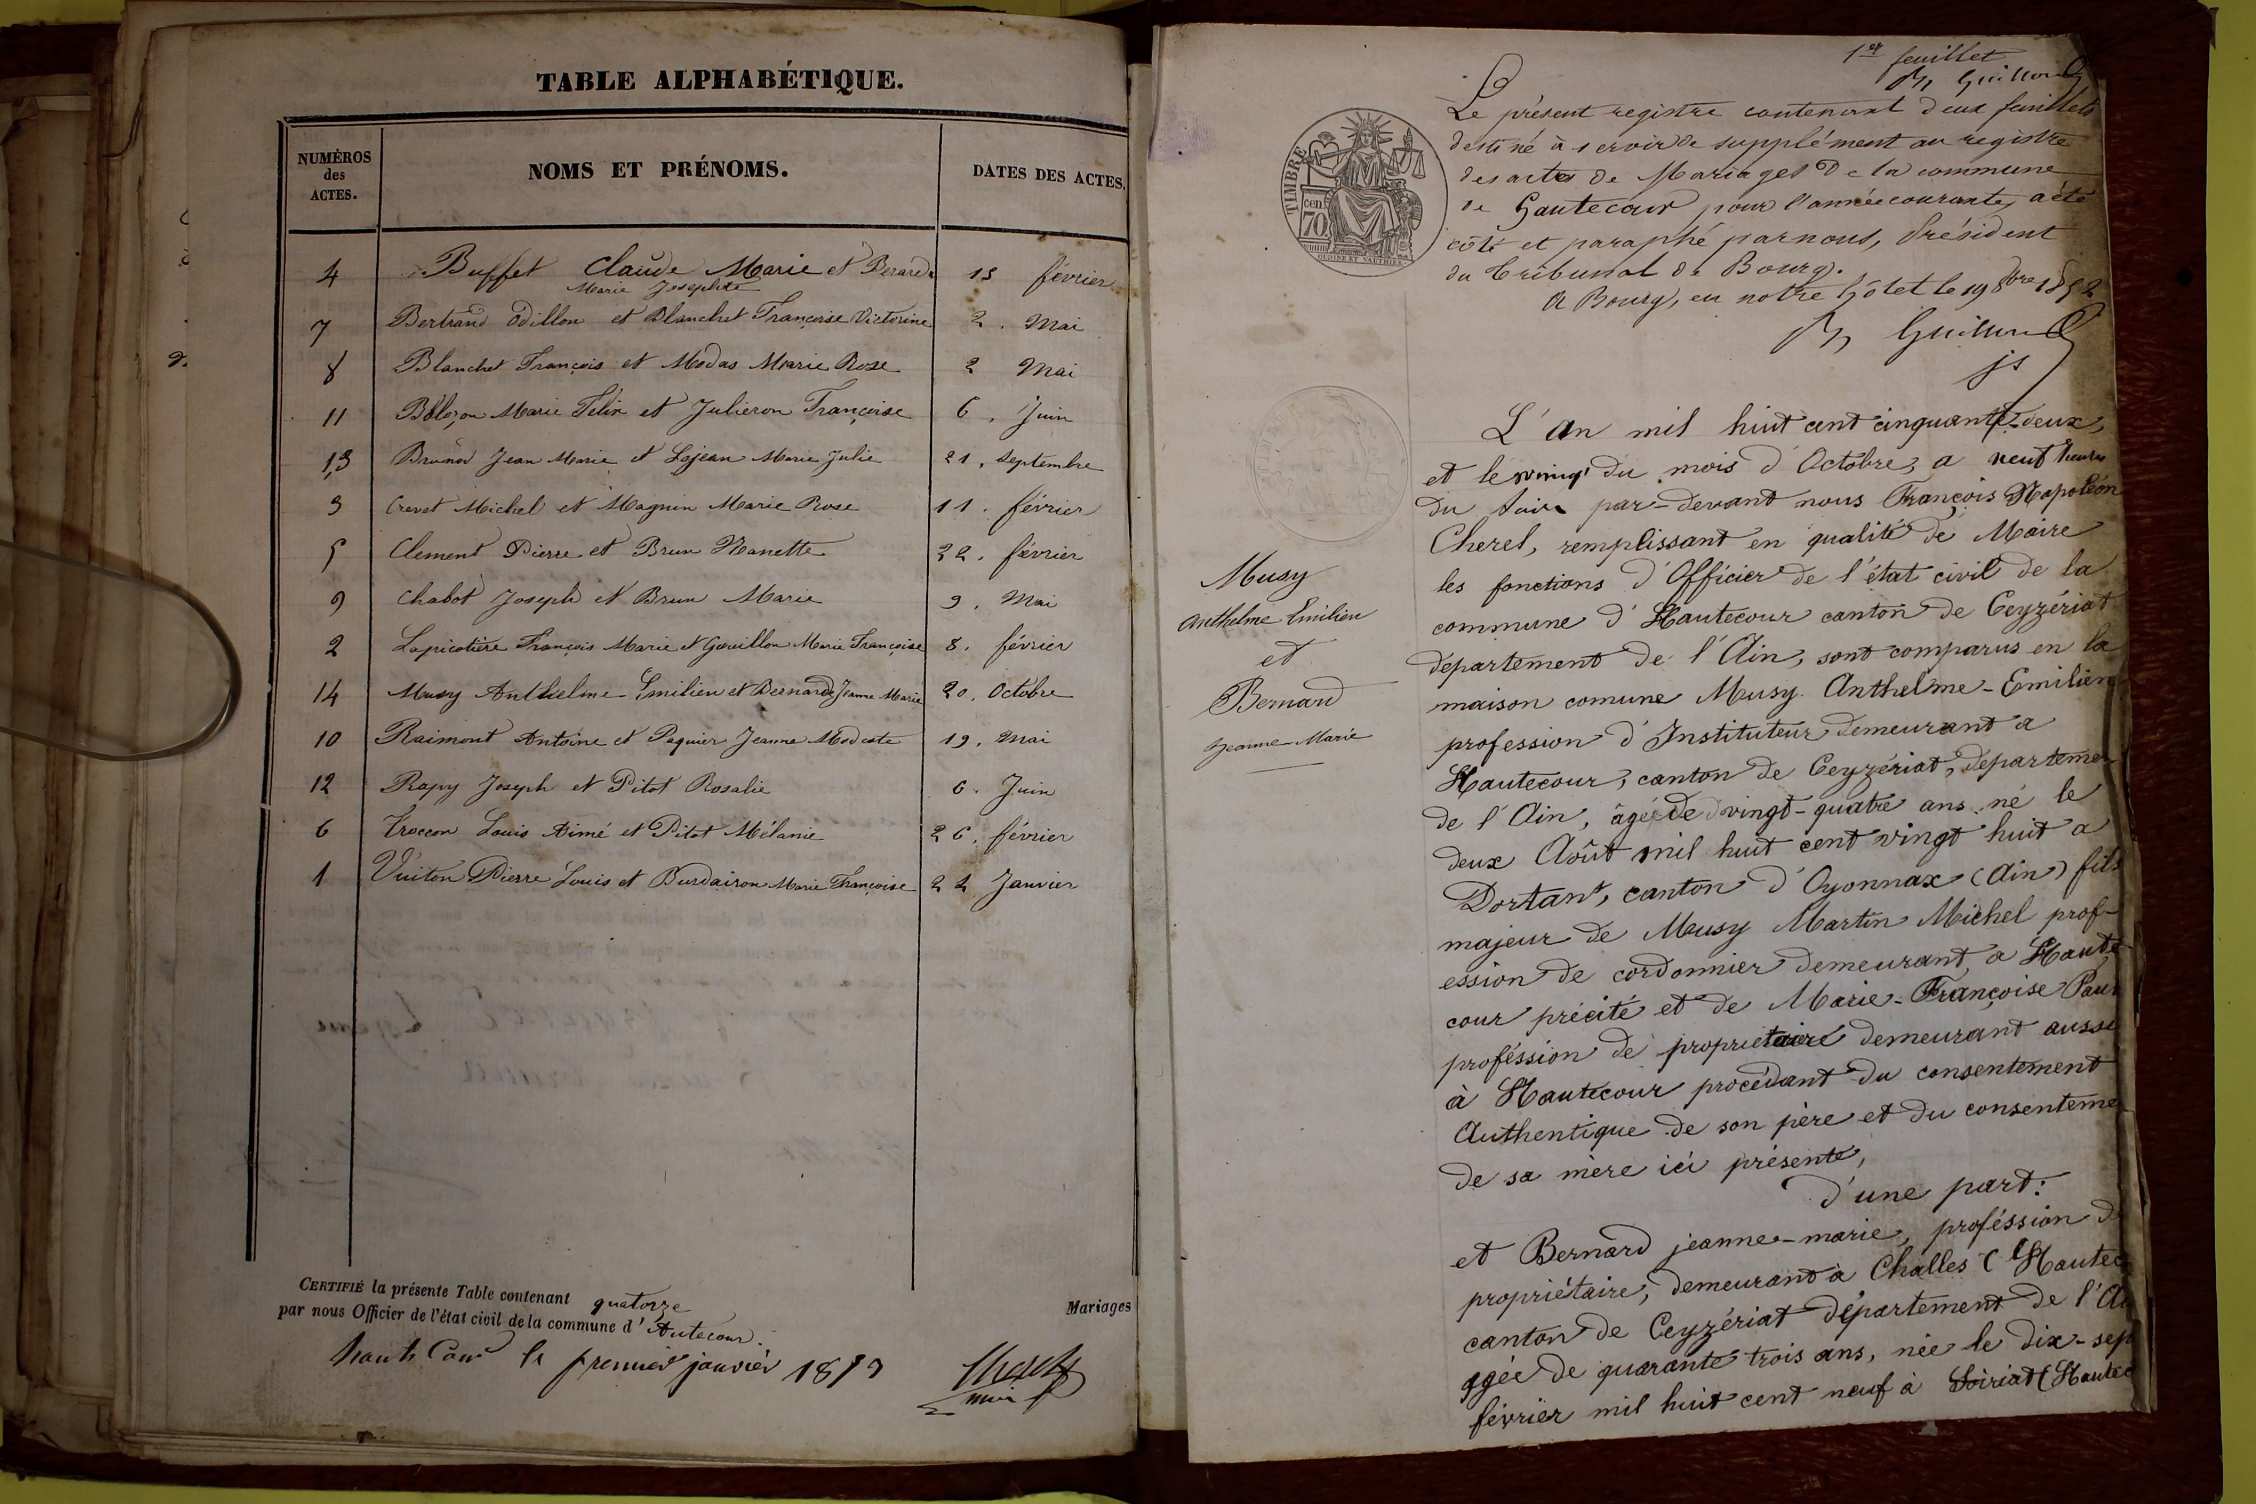 TABLE ALPHABÉTIQUE.
NUMÉROS des ACTES.
NOMS ET PRÉNOMS.
DATES DES ACTES.
4 Buffet Claude Marie et 15 février
Marie Josephte
7 Bertrand Odillon et Blanchet Françoise Victorine 2. Mai
8 Blanchet François et Modas Marie Rose 2 Mai
11 Marie Félix et Julieron Françoise 6. Juin
13 Jean Marie et Lojean Marie Julie 21. Septembre
3 Crevet Michel et Magnin Marie Rose 11. février
5 Clement Pierre et Brun Nanette 22. février
9 Chabot Joseph et Brun Marie 9. Mai
2 Lapicotière François Marie et Marie Françoise 8. février
14 Musy Anthelme-Emilien et Bernard Jeanne Marie 20. Octobre
10 Raimont Antoine et Pequier Jeanne Modeste 19. Mai
12 Rapy Joseph et Pitot Rosalie 6. Juin
6 Troccon Louis Aimé et Pitot Mélanie 26. février
1 Vuiton Pierre Louis et Burdairon Marie Françoise 22 Janvier
CERTIFIÉ la présente Table contenant quatorze Mariages
par nous Officier de l'état civil de la commune d' Autecour.
haute Cour le premier janvier 1853
Cherel
maire
1er feuillet
Guillon
Le présent registre contenant deux feuillets
destiné à servir de supplément au registre
des actes de Mariages de la commune
de Hautecour pour l'année courante, a été
côté et paraphé par nous, Président
du Tribunal de Bourg.
A Bourg, en notre hôtel le 19 8bre 1852
Guillon
TIMBRE
cen.
70
L'An mil huit cent cinquante-deux,
et le vingt du mois d'Octobre, a neuf heures
du soir par-devant nous François Napoléon
Cherel, remplissant en qualité de Maire
les fonctions d'Officier de l'état civil de la
commune d'Hautecour canton de Ceyzériat
département de l'Ain, sont comparus en la
maison comune Musy Anthelme-Emilien
profession d'Instituteur demeurant a
Hautecour, canton de Ceyzériat, départemen
de l'Ain, âgé de vingt-quatre ans né le
deux Août mil huit cent vingt huit a
Dortant, canton d'Oyonnax (Ain) fils
majeur de Musy Martin Michel prof-
ession de cordonnier demeurant a Haute
cour précité et de Marie-Françoise
proféssion de propriétaire demeurant aussi
à Hautecour procédant du consentement
Authentique de son père et du consenteme
de sa mère ici présente,
d'une part:
et Bernard jeanne-marie, proféssion de
propriétaire, demeurant à Challes (Hautec
canton de Ceyzériat département de l'Ai
agée de quarante trois ans, née le dix-sep
février mil huit cent neuf à Soiriat (Hautec
Musy
Anthelme Emilien
et
Bernard
Jeanne-Marie